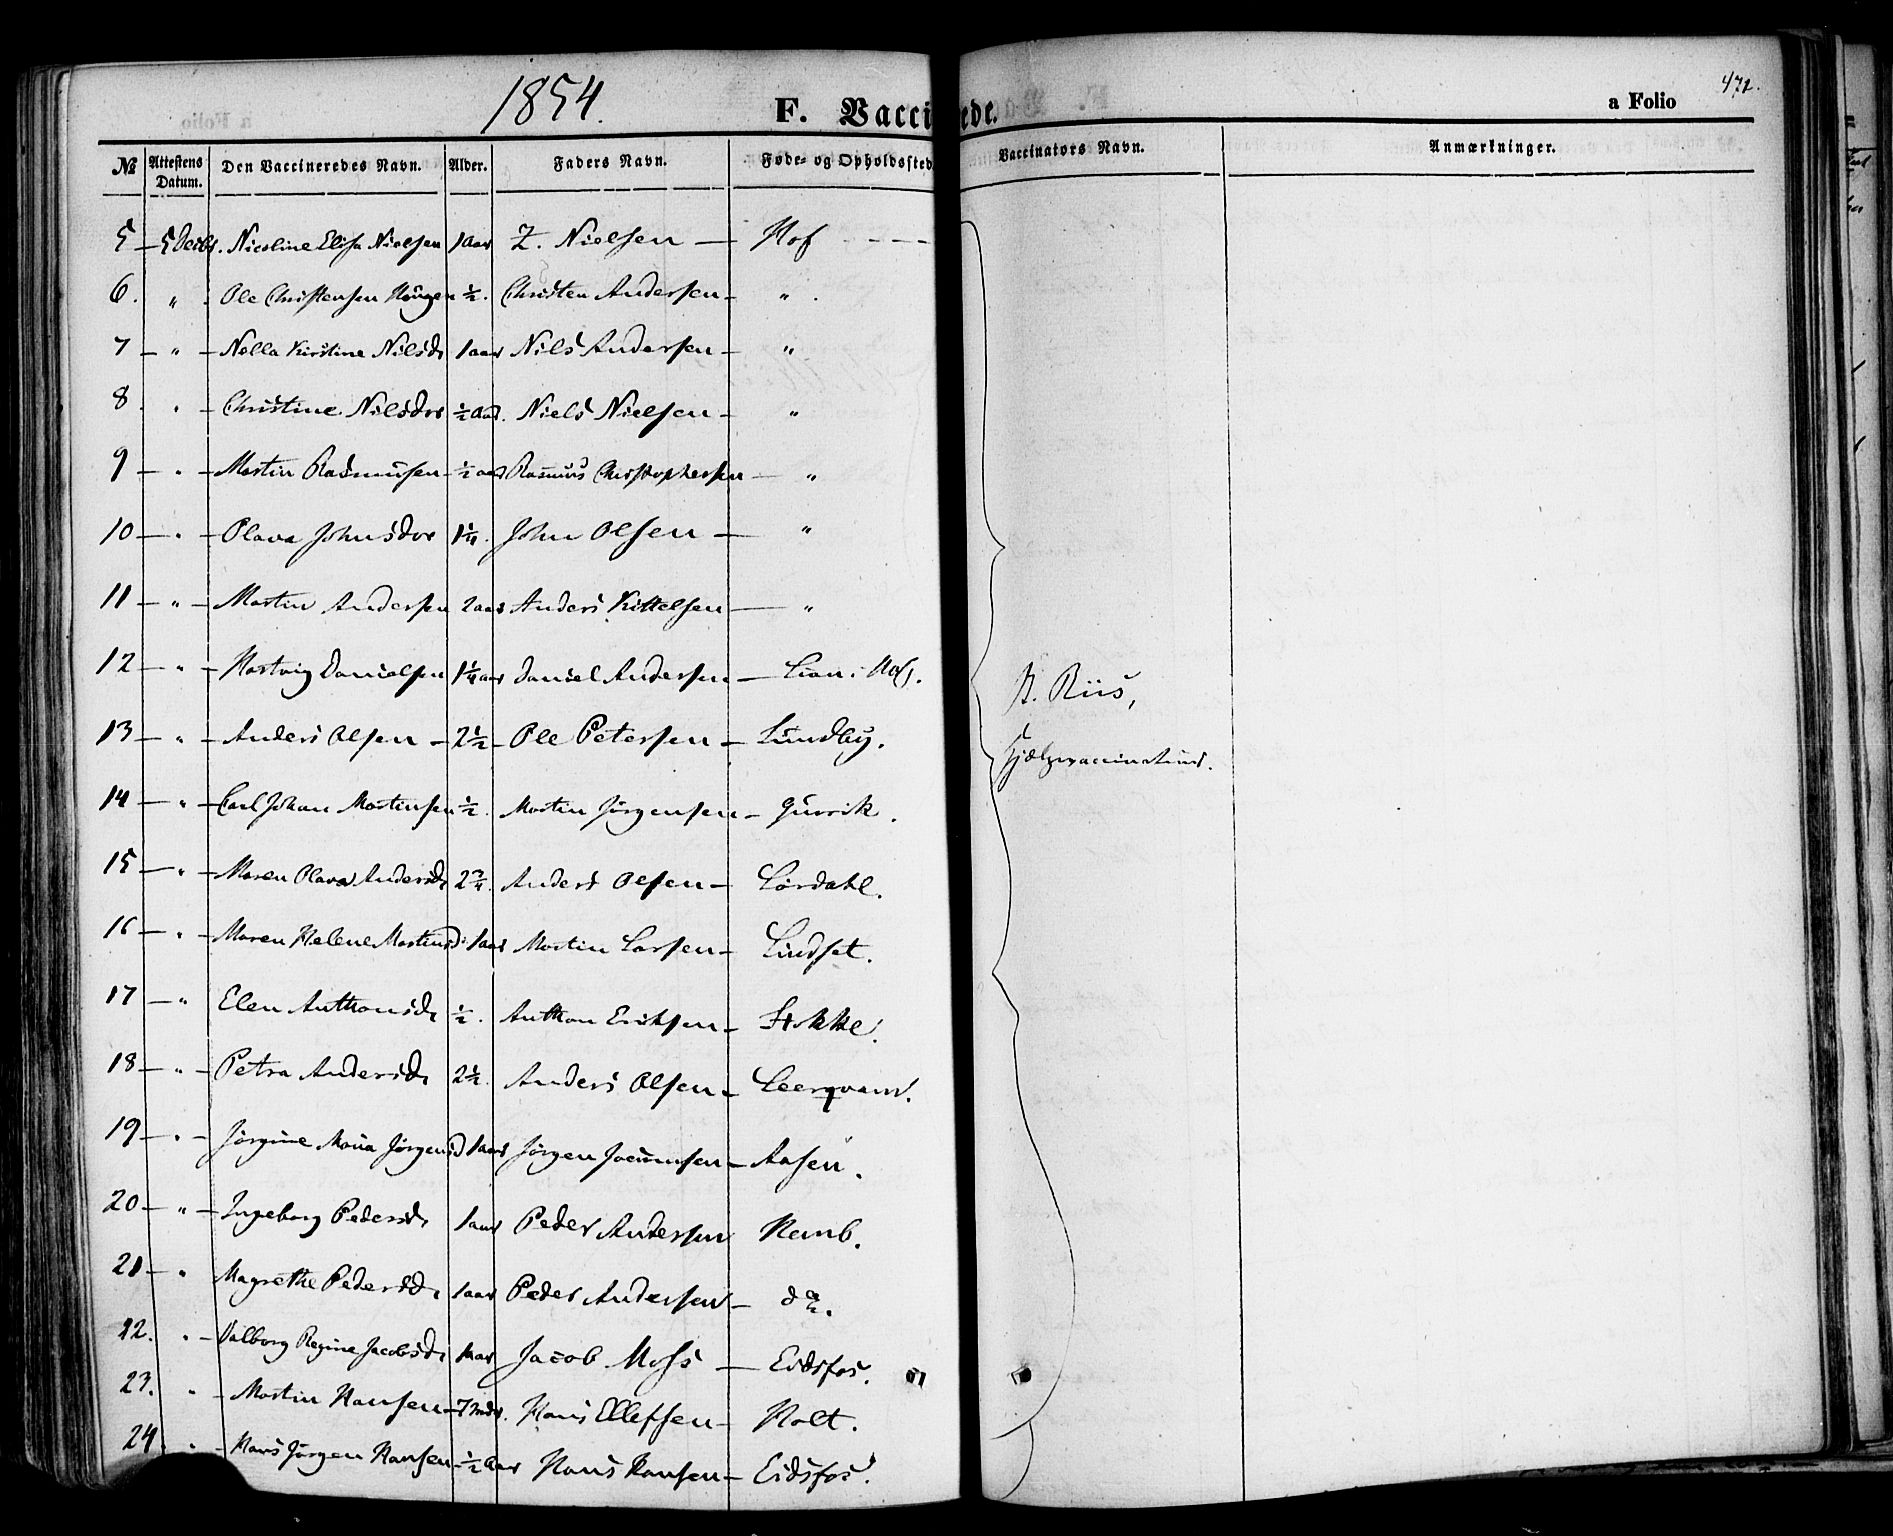 1854.
F. Vaccinerede.
a Folio
472.
№ Attestens Datum. Den Vaccineredes Navn. Alder. Faders Navn. Føde- og Opholdssted Vaccinators Navn. Anmærkninger.
5 – 5 Decbr. Nicoline Elise Nielsen 1 Aar Z. Nielsen — Hof
6. " Ole Christensen Haugen ½. Christen Andersen – "
7 – " – Nella Kirstine Nilsd. 1 aar Nils Andersen – "
8. " – Christine Nilsdr ½ Aar. Niels Nielsen – "
9 – " – Martin Rasmusen – ½ aar Rasmus Christophersen — "
10 – " – Olava Johnsdr 1¼. John Olsen — "
11 – " – Martin Andersen 2 aar Anders Kittelsen — "
12 – " – Hartvig Danielsen 1¼ aar Daniel Andersen – Lian i Hof.
13 – " – Anders Olsen – 2½ – Ole Petersen – Lundby.
14 – " – Carl Johan Martinsen ½. Martin Jörgensen –
15 – " – Maren Olava Andersd. 2¾. Anders Olsen – Lørdahl.
16 – " – Maren Helene Martinsd: 1 aar Martin Larsen – Lindset.
17 – " Elen Anthonsd. ½. Anthon Eriksen – Stokke.
18 – " – Petra Andersd. 2½. Anders Olsen – Leerqvand.
19 – " – Jörgine Maria Jørgensd 1 aar Jörgen – Aasen.
20 – " – Ingeborg Pedersd. 1 aar Peder Andersen
21 – " Magrethe Pedersd. 1 aar Peder Andersen – do.
22. " – Valborg Regine Jacobsd. 1 Aar Jacob Moss — Eidsfos.
23. " – Martin Hansen – 7 mdr. Hans Ellefsen – Holt.
24 " – Hans Jörgen Hansen – ½ Aar Hans Hansen – Eidsfos.
Riis,
Hjælpevaccinateur.